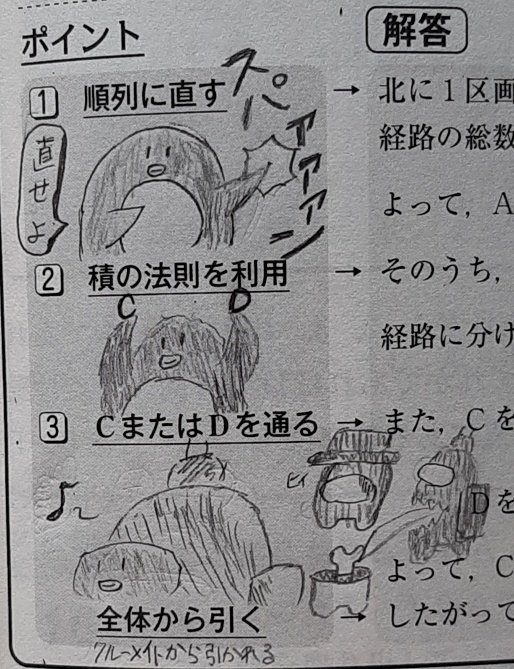 ポイント
解答
1 順列に直す
スパァァアアン
直せよ
→ 北に1区画
経路の総数
よって，A
2 積の法則を利用
→ そのうち，
C D
経路に分け
3 CまたはDを通る
→ また，Cを
ヒィ
Dを
よって，C
全体から引く
→ したがって
クルーメイトから引かれる